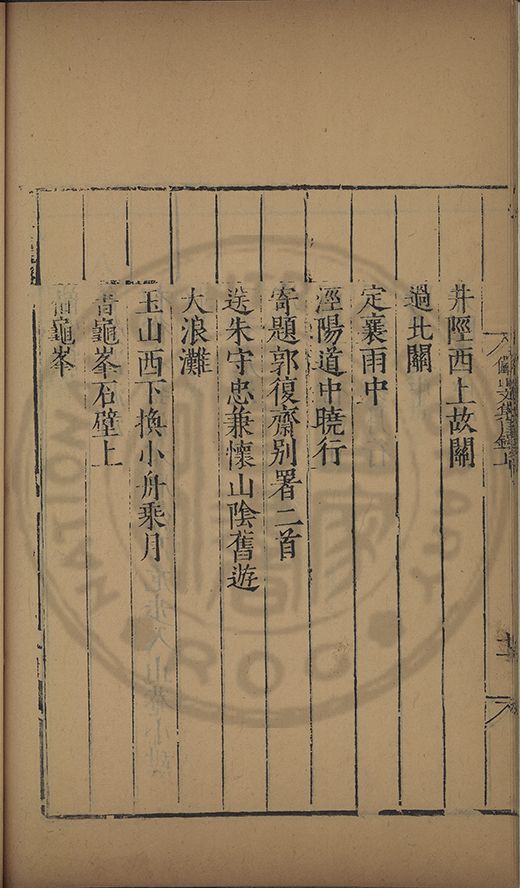 井陘西上故關
過北關
定襄雨中
涇陽道中曉行
寄題郭復齋別署二首
送朱守忠兼懷山陰舊遊
大浪灘
玉山西下換小舟乘月
書龜峯石壁上
宿龜峯